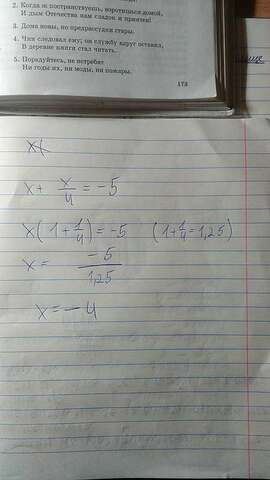 2. Когда ж постранствуешь, воротишься домой,
И дым Отечества нам сладок и приятен!
3. Дома новы, но предрассудки стары.
4. Чин следовал ему; он службу вдруг оставил,
В деревне книги стал читать.
5. Порадуйтесь, не истребят
Ни годы их, ни моды, ни пожары.
173
x+
x + x/4 = -5
x(1 + 1/4) = -5 (1 + 1/4 = 1,25)
x = -5/1,25
x = -4